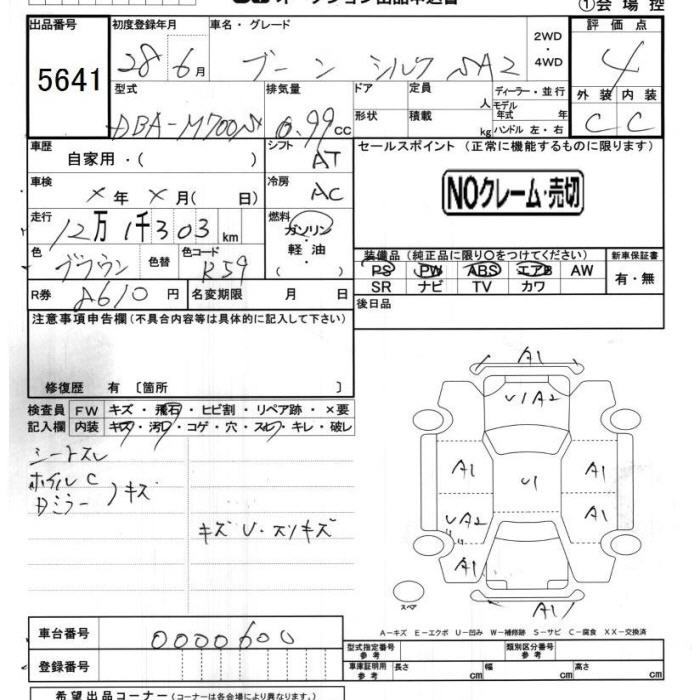 オークション出品申込書
①会場控
出品番号 初度登録年月 車名・グレード 2WD・4WD 評価点
5641 28年6月 ブーン シルク SA2 4
型式 排気量 ドア 定員 人 ディーラー・並行 外装 内装
DBA-M700S 0.99cc 形状 積載 kg モデル年式 年 ハンドル 左・右 C C
車歴 シフト セールスポイント (正常に機能するものに限ります)
自家用・( ) AT
NOクレーム・売切
車検 冷房
×年×月( 日) AC
走行 燃料
12万1千303km ガソリン・軽油
色 色替 色コード 装備品(純正品に限り〇をつけてください) 新車保証書
ブラウン R59 PS PW ABS エアB AW 有・無
SR ナビ TV カワ
R券 A610円 名変期限 月 日 後日品
注意事項申告欄(不具合内容等は具体的に記入して下さい)
修復歴 有〔箇所 〕
検査員 FW キズ・飛石・ヒビ割・リペア跡・×要
記入欄 内装 キズ・汚レ・コゲ・穴・スレ・キレ・破レ
シートスレ
ホイルC
Dミラー
キズ
キズ U・スリキズ
A1
U1A2
A1 U1 A1
UA2 A1
A1 A1
A1
スペア
A−キズ E−エクボ U−凹み W−補修跡 S−サビ C−腐食 XX−交換済
車台番号 0000600 型式指定番号 参考 類別区分番号 参考
登録番号 車庫証明用 参考 長さ cm 幅 cm 高さ cm
希望出品コーナー(コーナーは各会場により異なります。)